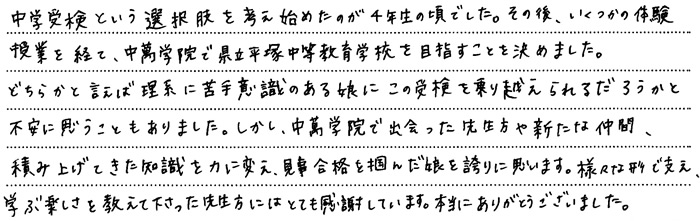 中学受検という選択肢を考え始めたのが4年生の頃でした。その後、いくつかの体験
授業を経て、中萬学院で県立平塚中等教育学校を目指すことを決めました。
どちらかと言えば理系に苦手意識のある娘にこの受検を乗り越えられるだろうかと
不安に思うこともありました。しかし、中萬学院で出会った先生方や新たな仲間、
積み上げてきた知識を力に変え、見事合格を掴んだ娘を誇りに思います。様々な形で支え、
学ぶ楽しさを教えて下さった先生方にはとても感謝しています。本当にありがとうございました。